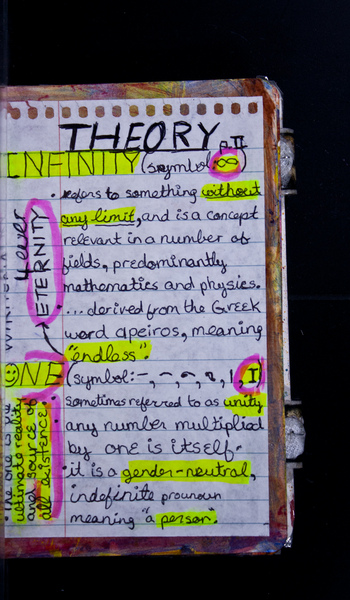 THEORY p.II
INFINITY (symbol ∞)
• refers to something without
any limit, and is a concept
relevant in a number of
fields, predominantly
mathematics and physics.
• ... derived from the Greek
word apeiros, meaning
"endless".
4 ever
ETERNITY
ONE (symbol:-, 1, I)
• sometimes referred to as unity
any number multiplied
by one is itself.
• it is a gender-neutral,
indefinite pronoun
meaning "a person".
• The one is the
ultimate reality
and source of
all existence